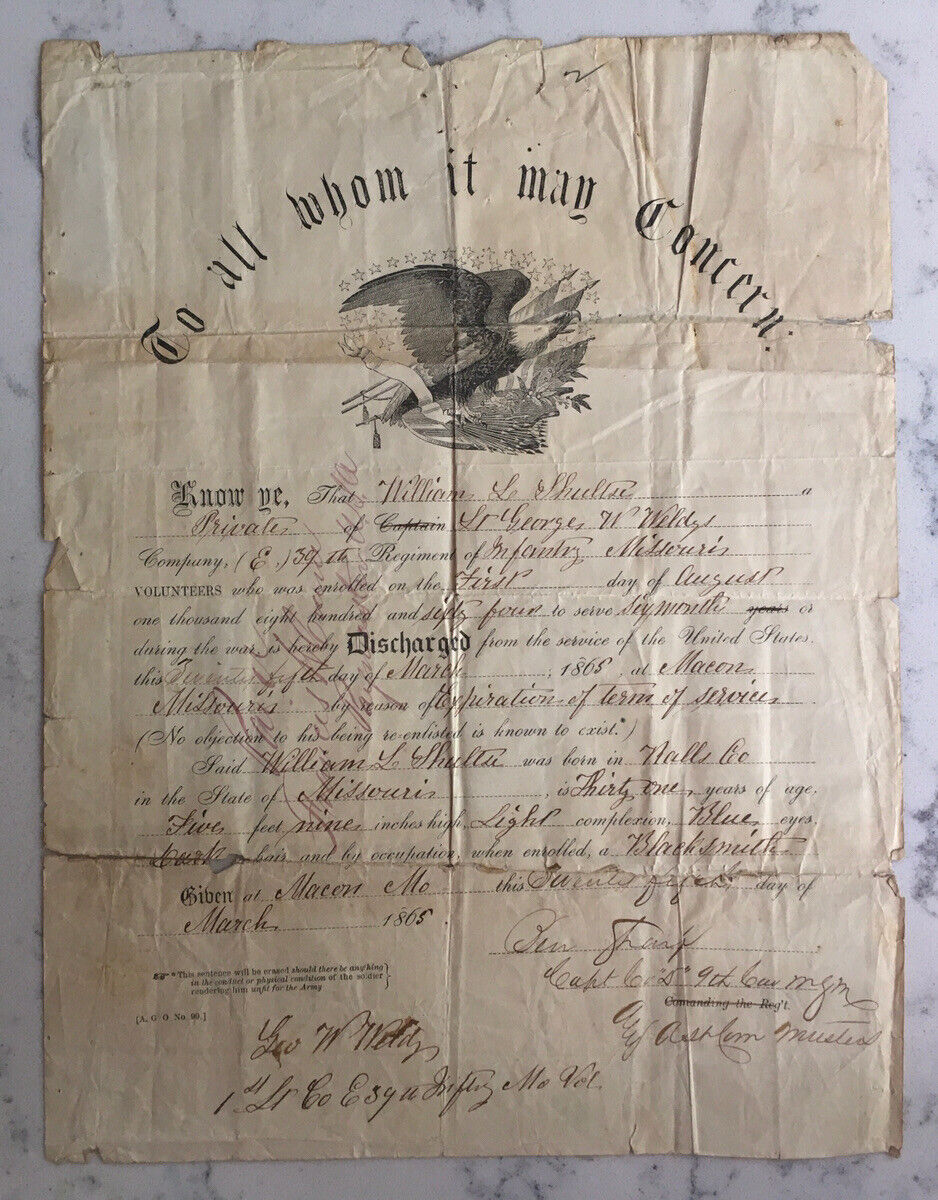 To all whom it may Concern:
Know ye, That William L Shultse a
Private of Captain Lt George W Weldy
Company, (E,) 39th Regiment of Infantry Missouri
VOLUNTEERS who was enrolled on the First day of August
one thousand eight hundred and sixty four to serve Six months years or
during the war, is hereby Discharged from the service of the United States,
this Twenty fifth day of March, 1865, at Macon
Missouri by reason of Expiration of term of service
(No objection to his being re-enlisted is known to exist.*)
Said William L Shultse was born in Ralls Co
in the State of Missouri, is Thirty one years of age,
Five feet nine inches high, Light complexion, Blue eyes,
Dark hair, and by occupation, when enrolled, a Blacksmith
Given at Macon Mo this Twenty fifth day of
March 1865.
Ben Tharp
Capt Co "D" 9th Cav MSM
Comanding the Reg't.
Ast Com Musters
*This sentence will be erased should there be anything
in the conduct or physical condition of the soldier
rendering him unfit for the Army
[A. G. O. No. 99.]
Geo W Weldy
1st Lt Co E 39th Inftry Mo Vol.